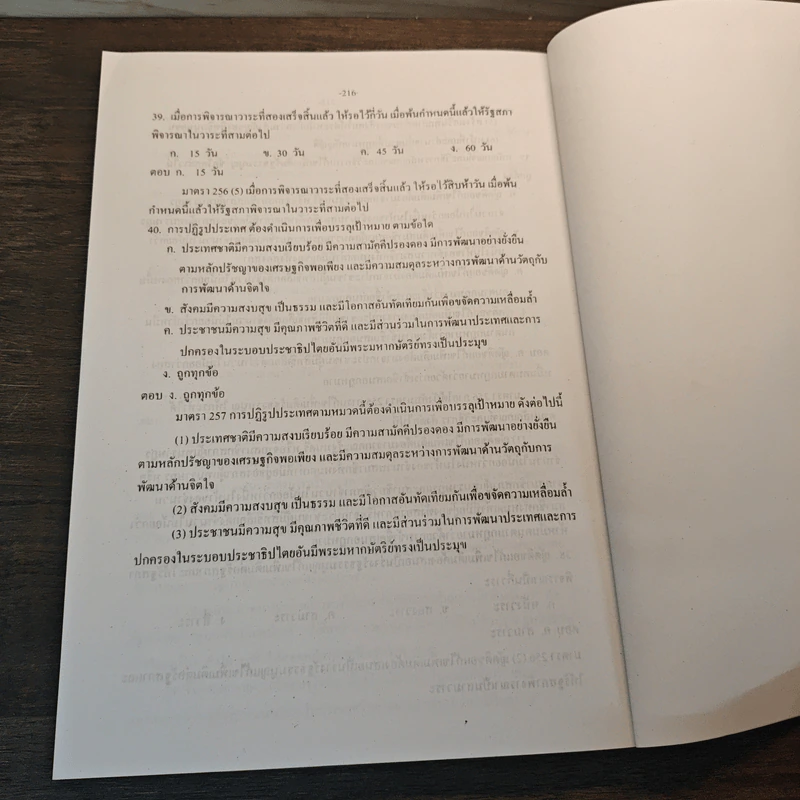 -216-
39. เมื่อการพิจารณาวาระที่สองเสร็จสิ้นแล้ว ให้รอไว้กี่วัน เมื่อพ้นกำหนดนี้แล้วให้รัฐสภา
พิจารณาในวาระที่สามต่อไป
ก. 15 วัน ข. 30 วัน ค. 45 วัน ง. 60 วัน
ตอบ ก. 15 วัน
มาตรา 256 (5) เมื่อการพิจารณาวาระที่สองเสร็จสิ้นแล้ว ให้รอไว้สิบห้าวัน เมื่อพ้น
กำหนดนี้แล้วให้รัฐสภาพิจารณาในวาระที่สามต่อไป
40. การปฏิรูปประเทศ ต้องดำเนินการเพื่อบรรลุเป้าหมาย ตามข้อใด
ก. ประเทศชาติมีความสงบเรียบร้อย มีความสามัคคีปรองดอง มีการพัฒนาอย่างยั่งยืน
ตามหลักปรัชญาของเศรษฐกิจพอเพียง และมีความสมดุลระหว่างการพัฒนาด้านวัตถุกับ
การพัฒนาด้านจิตใจ
ข. สังคมมีความสงบสุข เป็นธรรม และมีโอกาสอันทัดเทียมกันเพื่อขจัดความเหลื่อมล้ำ
ค. ประชาชนมีความสุข มีคุณภาพชีวิตที่ดี และมีส่วนร่วมในการพัฒนาประเทศและการ
ปกครองในระบอบประชาธิปไตยอันมีพระมหากษัตริย์ทรงเป็นประมุข
ง. ถูกทุกข้อ
ตอบ ง. ถูกทุกข้อ
มาตรา 257 การปฏิรูปประเทศตามหมวดนี้ต้องดำเนินการเพื่อบรรลุเป้าหมาย ดังต่อไปนี้
(1) ประเทศชาติมีความสงบเรียบร้อย มีความสามัคคีปรองดอง มีการพัฒนาอย่างยั่งยืน
ตามหลักปรัชญาของเศรษฐกิจพอเพียง และมีความสมดุลระหว่างการพัฒนาด้านวัตถุกับการ
พัฒนาด้านจิตใจ
(2) สังคมมีความสงบสุข เป็นธรรม และมีโอกาสอันทัดเทียมกันเพื่อขจัดความเหลื่อมล้ำ
(3) ประชาชนมีความสุข มีคุณภาพชีวิตที่ดี และมีส่วนร่วมในการพัฒนาประเทศและการ
ปกครองในระบอบประชาธิปไตยอันมีพระมหากษัตริย์ทรงเป็นประมุข